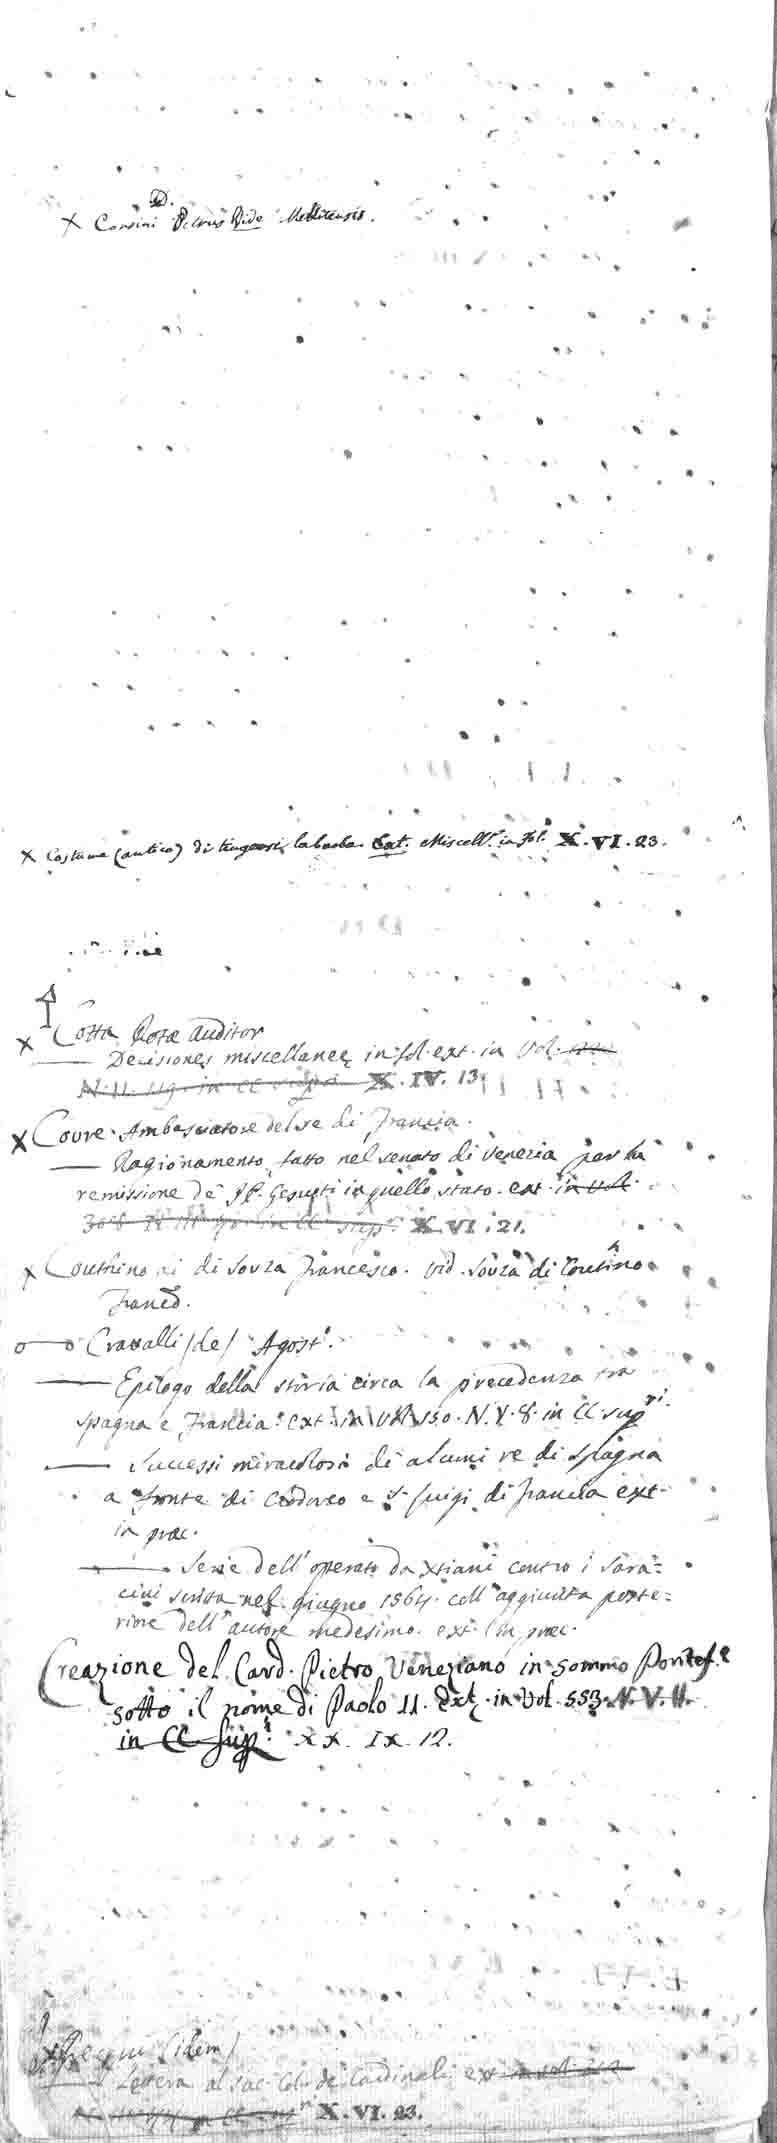 D.
X Corsini Petrus Vide Melitensis.
X Costume (antico) di tingersi la barba. Ext. Miscell. in fol. X. VI. 23.
X Cotta Rotæ Auditor
— Decisiones miscellaneę in fol. ext. in Vol.
N. II. 119. in CC X. IV. 13.
X Coure. Ambasciatore del re di Francia.
— Ragionamento fatto nel senato di Venezia per la
remissione de' PP. Gesuiti in quello stato. ext. in vol.
308 in CC sup. X. VI. 21.
X Couthino di Souza Francesco. vid. Souza di Coutino
Franco.
o—o Cravalli (de) Agost.
— Epilogo della storia circa la precedenza tra
Spagna e Francia. ext. in Vol. 130. N. V. 8. in CC. supri.
— Successi miracolosi di alcuni re di Spagna
a fronte di Clodoveo e S. Luigi di Francia ext.
in præc.
— Serie dell'operato da Xtiani contro i Sara=
cini scritta nel giugno 1564. coll'aggiunta poste=
riore dell'autore medesimo. ext. in præc.
Creazione del Card. Pietro Veneziano in sommo Pontef.e
sotto il nome di Paolo II. Ext. in Vol. 553. N. V. II.
in CC Sup. XX. IX. 12.
(idem)
— Lettera al sac. Col. de Cardinali ext. in vol.
X. VI. 23.